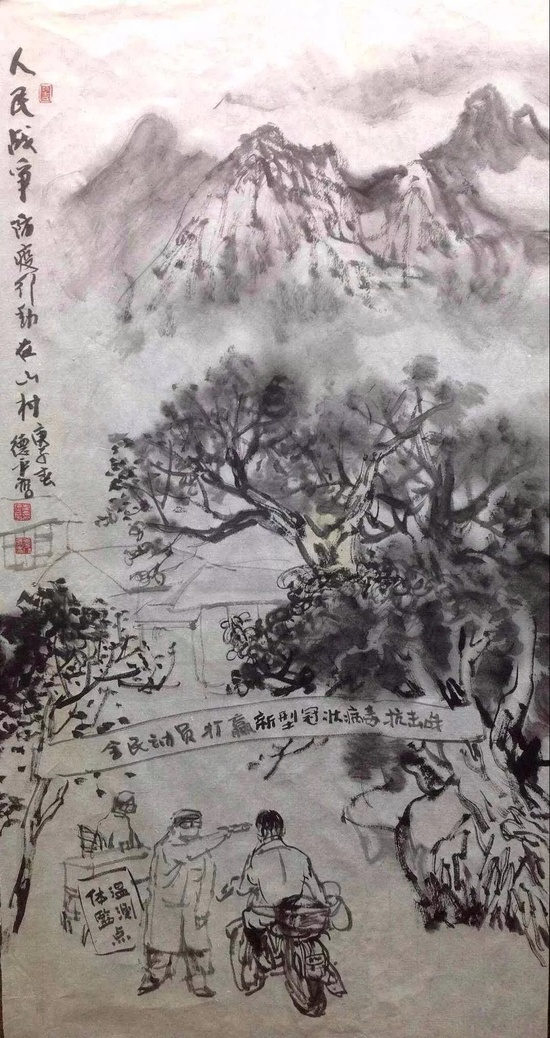 人民战争防疫行动在山村
庚子春
德平写
全民动员打赢新型冠状病毒抗击战
体温
监测
点